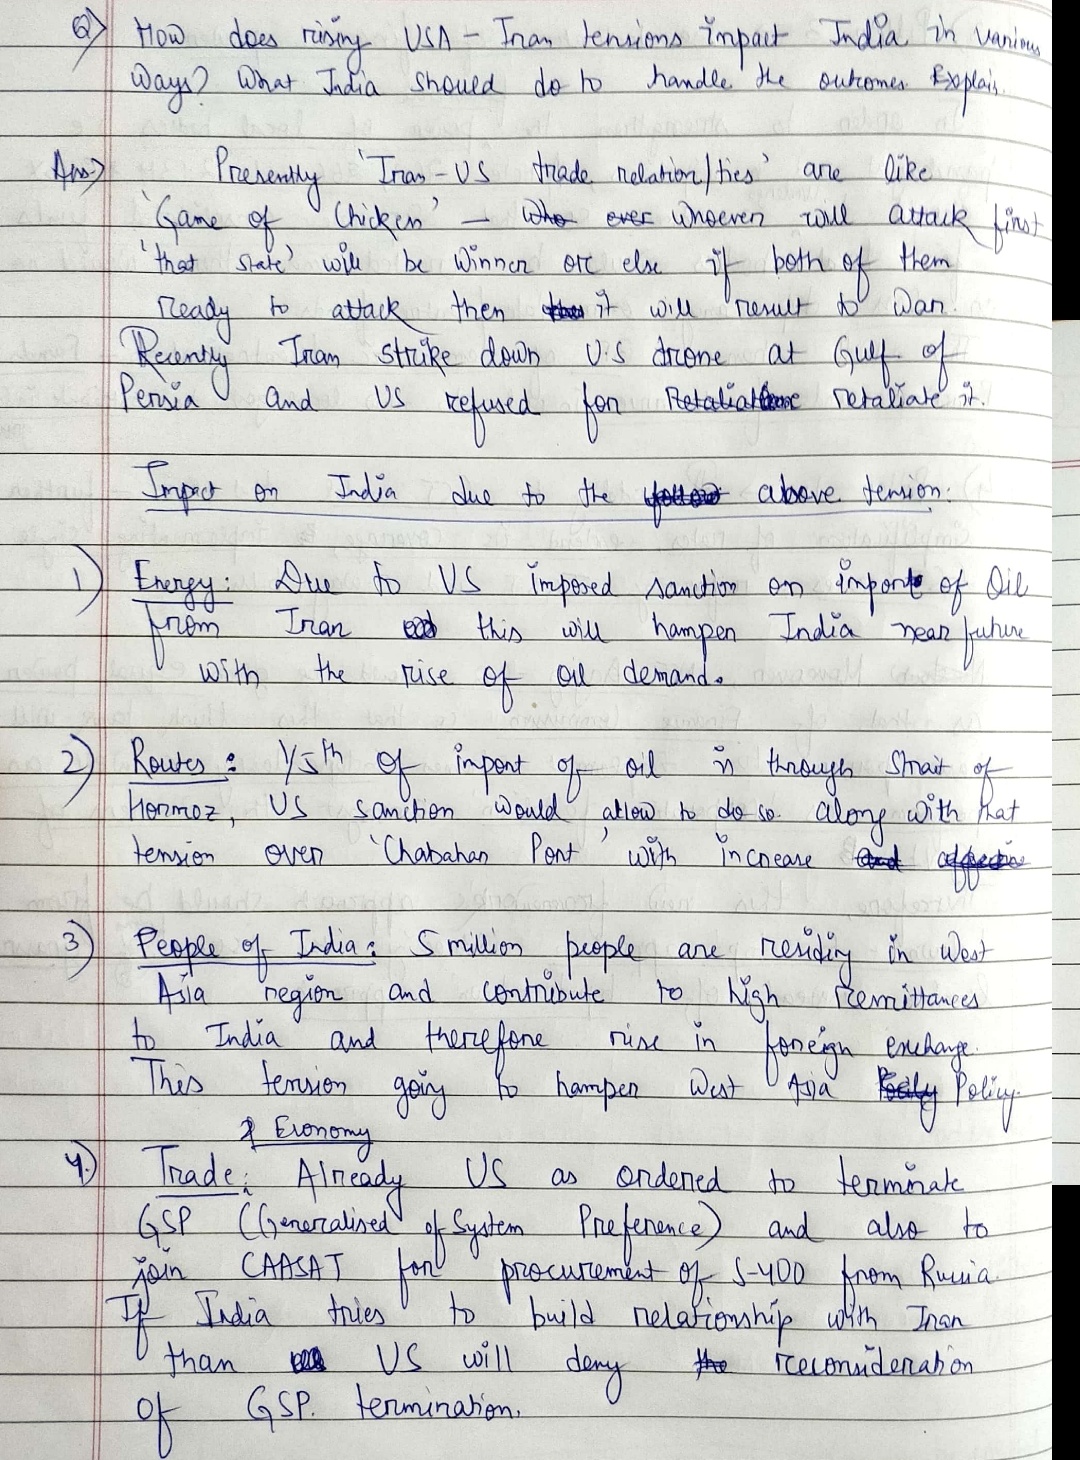 Q) How does rising USA - Iran tensions impact India in various
Ways? What India should do to handle the outcomes Explain.
Ans:) Presently 'Iran-US trade relation/ties' are like
'Game of Chicken' - who ever whoever will attack first
'that state' will be winner or else if both of them
ready to attack then it will result to war.
Recently Iran strike down U.S drone at Gulf of
Persia and US refused for retaliate it.
Impact on India due to the follow above tension:
1) Energy: Due to US imposed sanction on import of Oil
from Iran this will hamper India near future
with the rise of oil demand.
2) Routes: 1/5th of import of oil is through Strait of
Hormoz, US sanction would allow to do so. along with that
tension over 'Chabahar Port' with increase and
3) People of India: 5 million people are residing in West
Asia region and contribute to high remittances
to India and therefore rise in foreign exchange.
This tension going to hamper West Asia Policy.
& Economy
4.) Trade: Already US as ordered to terminate
GSP (Generalised of System Preference) and also to
join CAASAT for procurement of S-400 from Russia.
If India tries to build relationship with Iran
than US will deny the reconsideration
of GSP. termination.